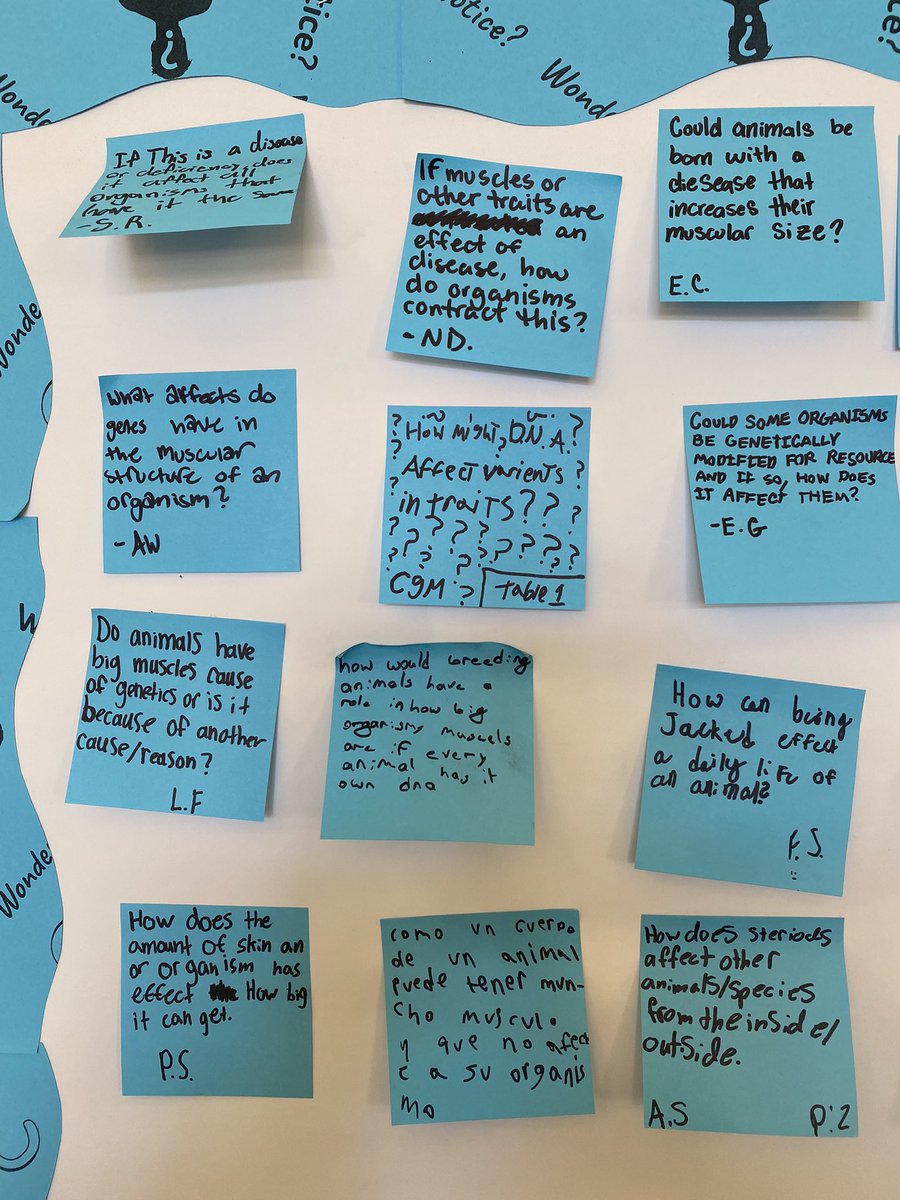 otice?
otice?
Wonde
Wonde
Wonde
Wonde
If This is a disease
or deficiency, does
it affect all
organisms that
have it the same
-S.R.
If muscles or
other traits are
an
effect of
disease, how
do organisms
contract this?
- ND.
Could animals be
born with a
diesease that
increases their
muscular size?
E.C.
what affects do
genes have in
the muscular
structure of an
organism?
- AW
? How might, D.N.A.?
? Affect varients ?
in traits???
? ? ? ? ? ? ?
? ? ? ? ? ? ? ?
CGM ? Table 1
COULD SOME ORGANISMS
BE GENETICALLY
MODIFIED FOR RESOURCE
AND IF SO, HOW DOES
IT AFFECT THEM?
-E.G
Do animals have
big muscles cause
of genetics or is it
because of another
cause/reason?
L.F
how would breeding
animals have a
role in how big
organisms muscels
are if every
animal has it
own dna
How can being
Jacked effect
a daily life of
an animal?
F.S.
How does the
amount of skin an
or organism has
effect How big
it can get.
P.S.
como un cuerpo
de un animal
puede tener mun-
cho musculo
y que no afect
e a su organis
mo
How does steriods
affect other
animals/species
from the inside/
outside.
A.S P:2